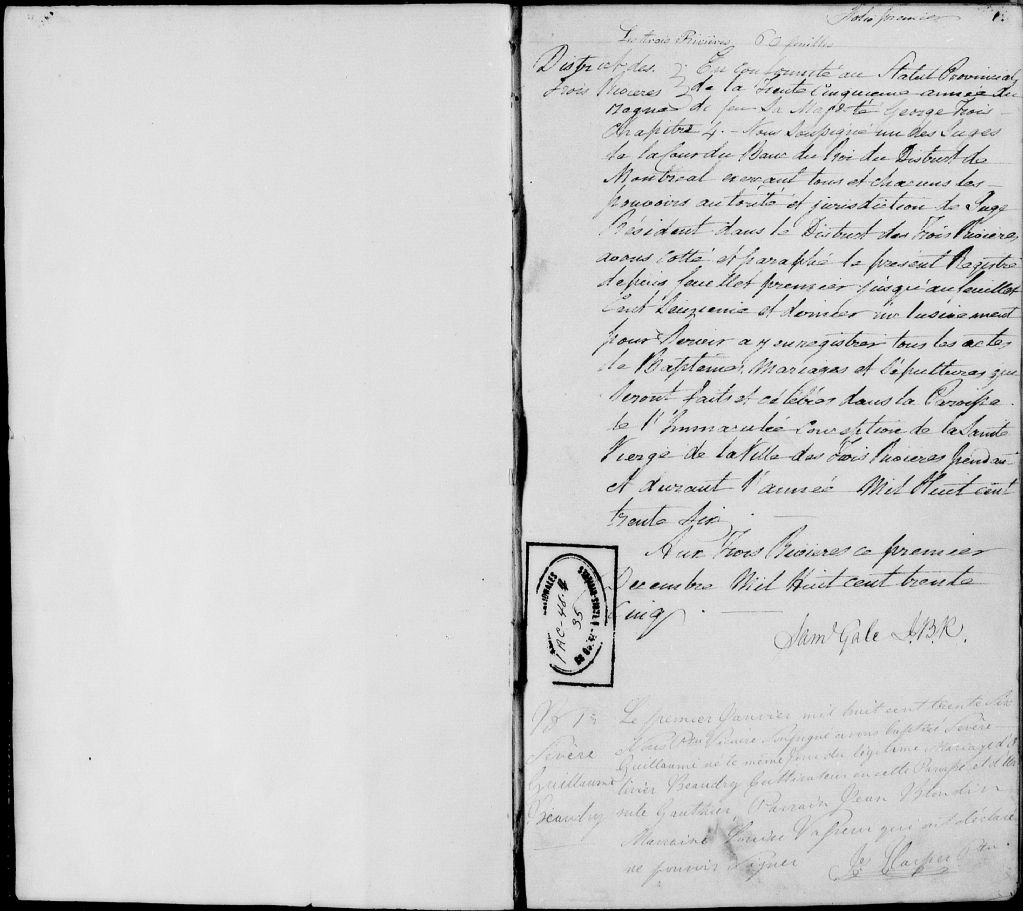 Folio premier
Les trois Rivières, 60 feuilles
District des } En conformité au Statut Provincial
Trois Rivieres } de la Trente Cinquieme année du
Regne de feu Sa Majesté George Trois
Chapitre 4. – Nous Soussigné un des Juges
de la Cour du Banc du Roi du District de
Montreal exerçant tous et chacuns les
pouvoirs autorité et jurisdiction de Juge
Résident dans le District des Trois Rivieres
avons Cotté et paraphé le présent Registre
depuis feuillet premier jusqu'au feuillet
Cent Seizieme et dernier inclusivement
pour Servir a y enregistrer tous les actes
de Baptemes, Mariages et Sépultures qui
Seront faits et célébrés dans la Paroisse
de l'Immaculée Conception de la Sainte
Vierge de la Ville des Trois Rivieres pendant
et durant l'année Mil Huit cent
trente Six
Aux Trois Rivieres ce premier
Decembre Mil Huit cent trente
Cinq.
Saml Gale J.B.R.
NATIONALES
1AC-46-4
35
Severe
Guillaume
Beaudry
Le premier Janvier mil huit cent trente Six
Nous Ptre Vicaire Soussigné avons baptisé Sévère
Guillaume né le même jour du légitime Mariage d'O
livier Beaudry Cultivateur en cette Paroisse et d'Ur
sule Gauthier, Parrain Jean Blondin
Marraine Louise Vasseur qui ont déclaré
ne pouvoir signer Js Harper Ptre